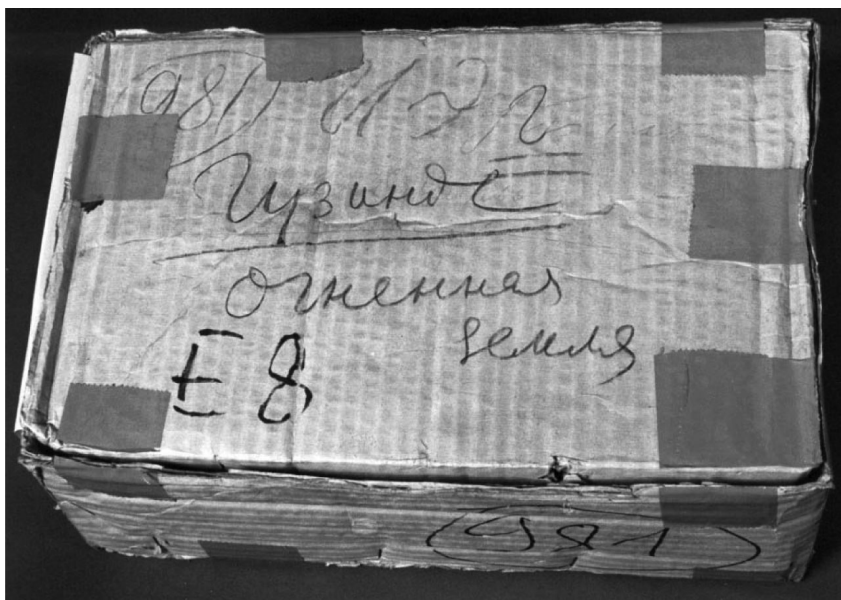 981
Гузинде
огненная
земля
E8
(981)